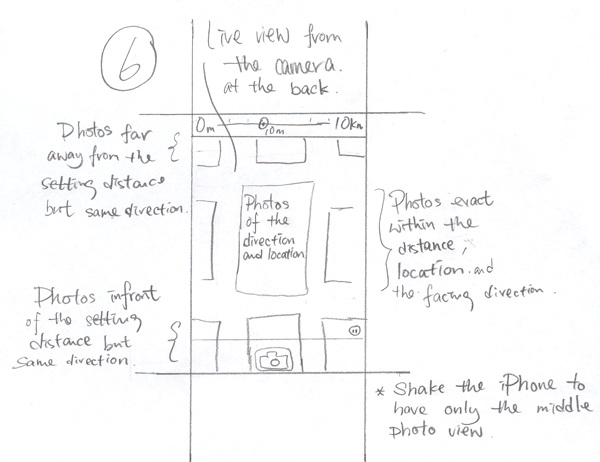 6
Live view from
the camera.
at the back.
0m 10m 10km
Photos far
away from the
setting distance
but same direction.
Photos
of the
direction
and location
Photos exact
within the
distance,
location and
the facing direction.
Photos infront
of the setting
distance but
same direction.
* Shake the iPhone to
have only the middle
photo view.